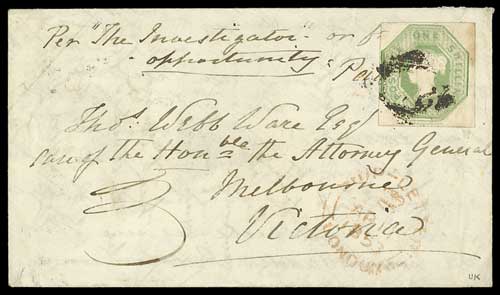 Per "The Investigator" or
opportunity
ONE SHILLING
Thos. Webb Ware Esqr
care of the Honble the Attorney General
Melbourne
Victoria
LONDON
UK